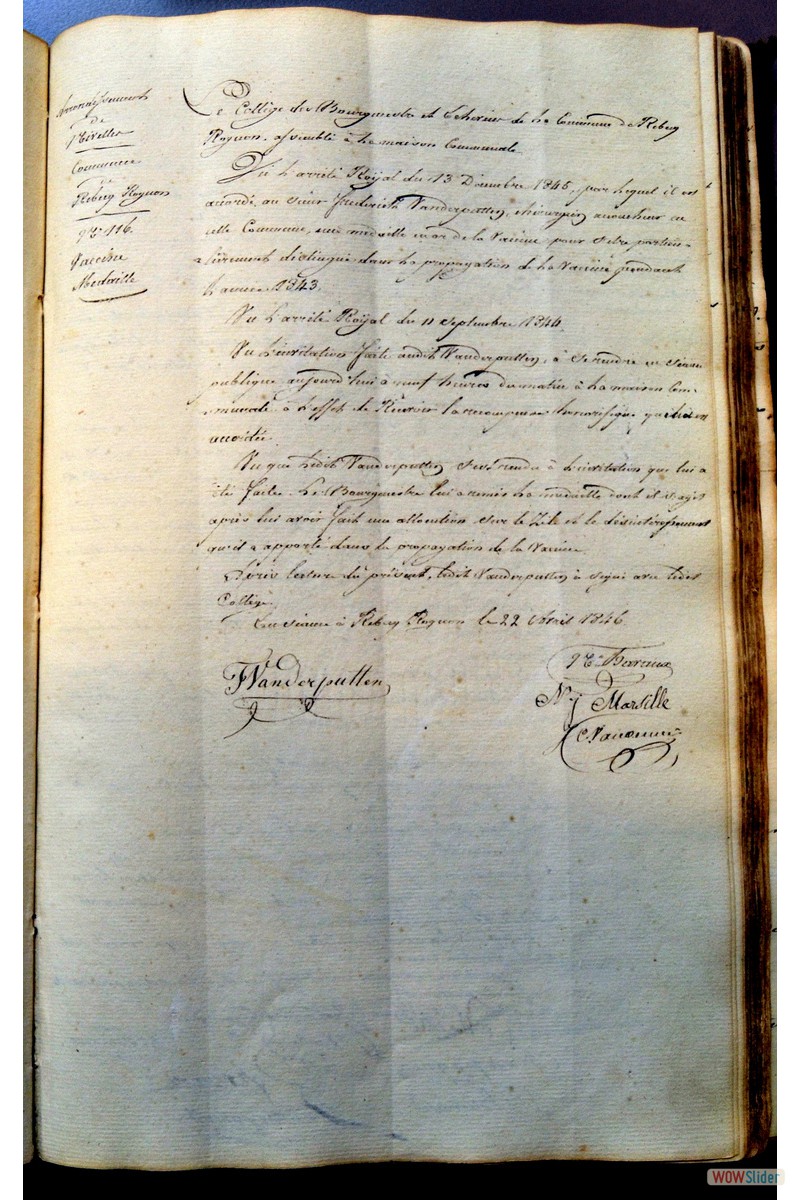 Arrondissement
de
Nivelles
Commune
de
Rebecq Rognon
N° 116.
Vaccine
Medaille
Le Collège des Bourgmestre et Echevins de la Commune de Rebecq
Rognon, assemblé à la maison Communale
Vu l'arrêté Royal du 13 Décembre 1845, par lequel il est
accordé, au sieur Frederick Vanderputten, chirurgien accoucheur en
cette Commune, une medaille en or de la Vaccine pour s'etre particu-
lièrement distingué dans la propagation de la Vaccine pendant
l'année 1843.
Vu l'arrêté Royal du 11 Septembre 1844.
Vu l'invitation faite audit Vanderputten, à se rendre en séance
publique aujourd'hui à neuf heures du matin à la maison Com-
munale à l'effet de recevoir la recompense honorifique qui lui est
accordée.
Vu que ledit Vanderputten s'est rendu à l'invitation que lui a
été faite. Le Bourgmestre lui a remis la medaille dont il s'agit
après lui avoir fait une allocution sur le Zèle et le désintéressement
qu'il a apporté dans la propagation de la Vaccine.
Après lecture du présent, ledit Vanderputten à signé avec ledit
Collège.
En séance à Rebecq Rognon le 22 Avril 1846.
FVanderputten
N. J. Marsille
WOWSlider